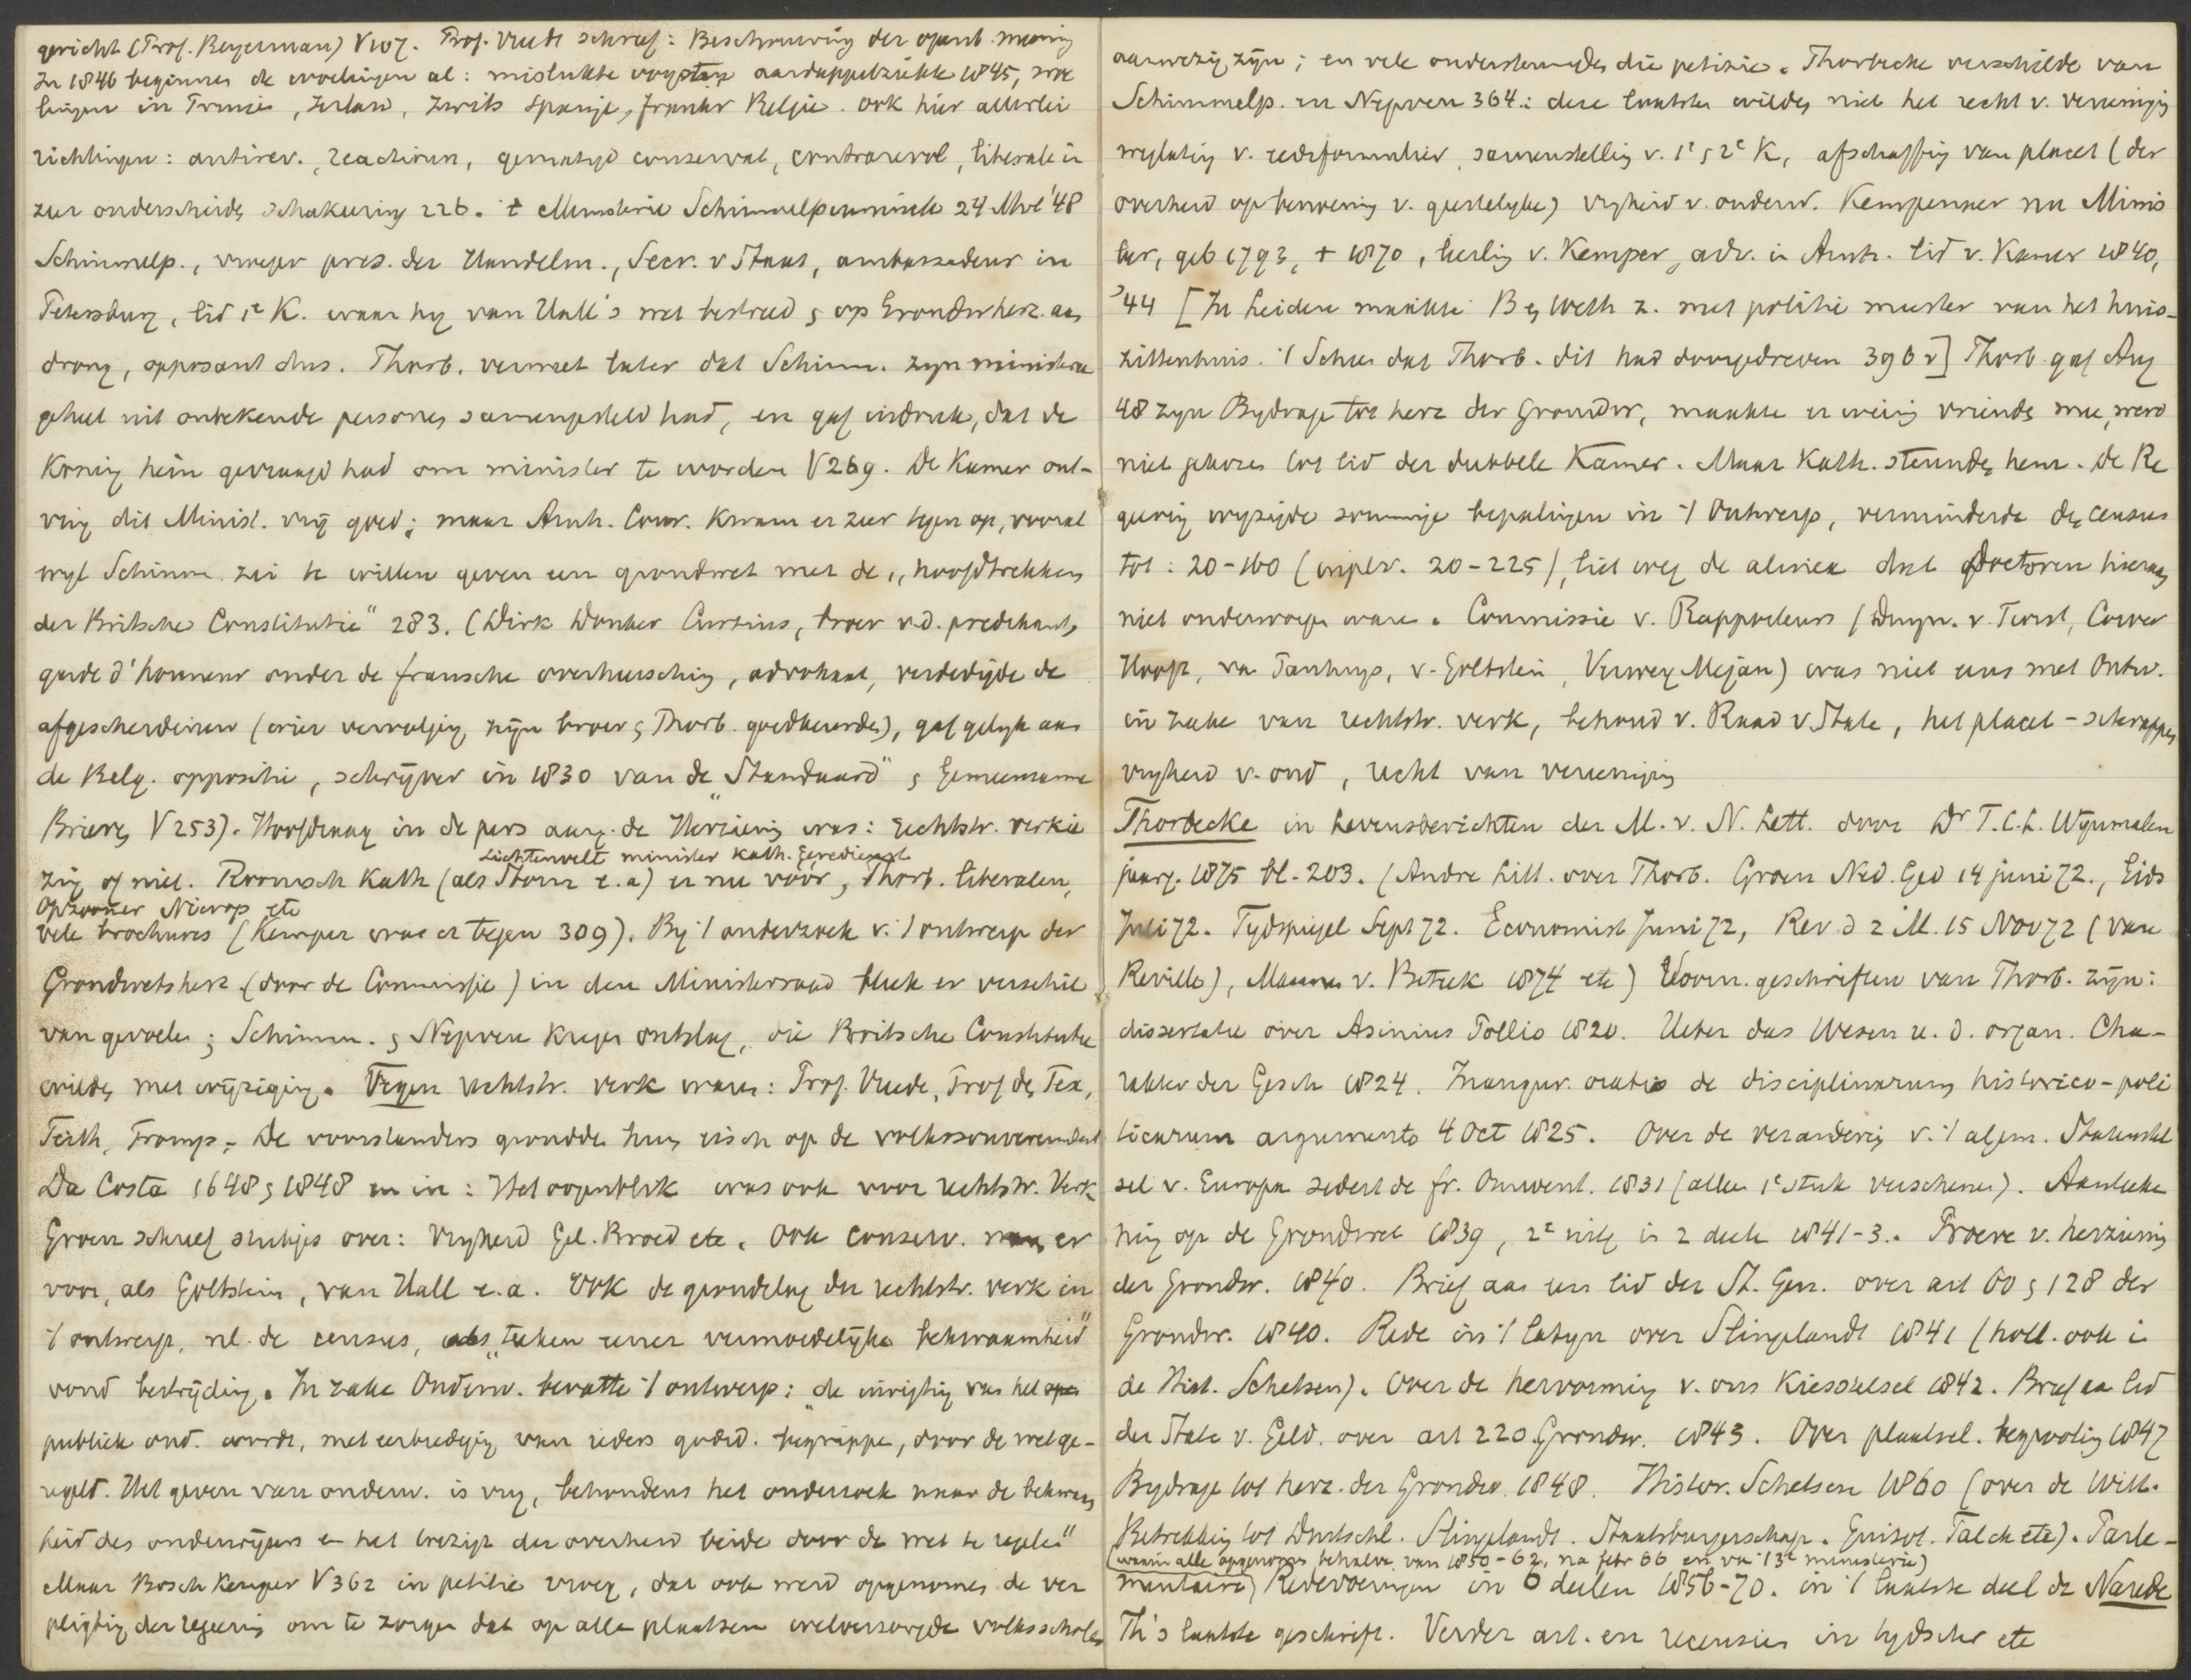 gericht (Prof. Beyerman) V107. Prof. Vrede schreef: Beschouwing der openb. mening
In 1846 beginnen de woelingen al: mislukte oogsten aardappelziekte 1845, woe
lingen in , Ierland, Zwits Spanje, Frankr Belgie. Ook hier allerlei
richtingen: antirev., reaction, gematigd conservat, contrarevol, liberale in
zeer onderscheiden schakering 226. 't Ministerie Schimmelpenninck 24 Mrt '48
Schimmelp., vroeger pres. der Handelm., Secr. v Staat, ambassadeur in
Petersburg, lid 1e K. waar hy van Hall's wet bestreed & op Grondwherz. aan
drong, opposant dus. Thorb. verweet later dat Schimm. zyn ministerie
geheel uit onbekende personen samengesteld had, en gaf indruk, dat de
Koning hem gevraagd had om minister te worden V269. De Kamer ont-
ving dit Minist. vrij goed; maar Arnh. Cour. kwam er zeer tegen op, vooral
wyl Schimm. zei te willen geven een grondwet met de "hoofdtrekken
der Britsche Constitutie" 283. (Dirk Donker Curtius, broer v.d. predikant,
garde d'honneur onder de fransche overheersching, advokaat, verdedigde de
afgescheidenen (wier vervolging zijn broer & Thorb. goedkeurden), gaf gelyk aan
de Belg. oppositie, schrijver in 1830 van de "Standaard" & Gemeenzame
Brieven V253). Hoofdvraag in de pers aang. de Herziening was: rechtstr. verkie
Lichtenvelt minister Kath. Eeredienst
zing of niet. Roomsch Kath (als Storm e.a) er nu vóór, Thorb. liberalen,
Opzoomer Nierop etc
vele brochures (Kemper was er tegen 309). By 't onderzoek v. 't ontwerp der
Grondwetsherz (door de Commissie) in den Ministerraad bleek er verschil
van gevoelen; Schimm. & Nepveu kregen ontslag, die Britsche Constitutie
wilden met wijziging. Tegen rechtstr. verk waren: Prof. Vrede, Prof den Tex,
Feith, Tromp. De voorstanders grondden hun eisch op de volkssouvereiniteit
Da Costa 1648 & 1848 en in: Het oogenblik was ook voor rechtstr. Verk
Groen schreef stukjes over: Vryheid Gel. Broed etc. Ook conserv. waren er
voor, als Goltstein, van Hall e.a. Ook de grondslag der rechtstr. verk in
't ontwerp, nl. de census, als "teeken eener vermoedelijke bekwaamheid"
vond bestrijding. In zake Onderw. bevatte 't ontwerp: "de inrigting van het
publiek ond. wordt, met eerbiediging van ieders godsd. begrippen, door de wet ge-
regeld. Het geven van onderw. is vry, behoudens het onderzoek naar de bekwaam
heid des onderwijzers en het toezigt der overheid beide door de wet te regelen"
Maar Bosch Kemper V362 in petitie vroeg, dat ook werd opgenomen de ver
pligting der regeering om te zorgen dat op alle plaatsen welverzorgde volksscholen
aanwezig zijn; en vele ondersteunden die petitie. Thorbecke verschilde van
Schimmelp. en Nepveu 364: deze laatsten wilden niet het recht v. vereeniging
weglating v. eedsformulier, samenstelling v. 1e & 2e K, afschaffing van placet (der
overheid op benoeming v. geestelyke) vryheid v. onderw. Kempenaer nu Minis
ter, geb 1793, + 1870, leerling v. Kemper, adv. in Arnh. lid v. Kamer 1840,
'44 [In Leiden maakte B en Weth z. met politie meester van het huis-
zittenhuis. 't Scheen dat Thorb. dit had doorgedreven 396 v] Thorb. gaf Aug
48 zyn Bydrage tot herz der Grondw, maakte er weinig vrienden mee, werd
niet gekozen tot lid der dubbele Kamer. Maar Kath. steunden hem. De Re
geering wyzigde sommige bepalingen in 't Ontwerp, verminderde den census
tot: 20-160 (inplv. 20-225), liet weg de alinea dat doctoren hieraan
niet onderworpen waren. Commissie v. Rapporteurs (Duym. v. Twist, Cower
Hoop, van Panhuys, v. Goltstein, Verwey Mejan) was niet eens met Ontw.
in zake van rechtstr. verk, behoud v. Raad v State, het placet - schrappen
vryheid v. ond, recht van vereeniging
Thorbecke in Levensberichten der M. v. N. Lett. door Dr T.C.L. Wynmalen
jaarg. 1875 bl. 203. (Andre Litt. over Thorb. Groen Ned. Ged 14 juni 72., Gids
Juli 72. Tydspiegel Sept 72. Economist Juni 72, Rev. d 2 M. 15 Nov 72 (van
Reville), Mannen v. Beteek 1874 etc) Voorn. geschriften van Thorb. zijn:
dissertatie over Asinius Pollio 1820. Ueber das Wesen u. d. organ. Cha-
rakter der Gesch 1824. Inaugur. oratio de disciplinarum historico-poli
ticarum argumento 4 Oct 1825. Over de verandering v. 't algem. Statenstel
sel v. Europa sedert de fr. Omwent. 1831 (alleen 1e stuk verschenen). Aanteeke
ning op de Grondwet 1839, 2e uitg in 2 deelen 1841-3. Proeve v. herziening
der Grondw. 1840. Brief aan een lid der St. Gen. over art 60 & 128 der
Grondw. 1840. Rede in 't latyn over Slingelandt 1841 (holl. ook in
de Hist. Schetsen). Over de hervorming v. ons Kiesstelsel 1842. Brief aan lid
der State v. Geld. over art 220 Grondw. 1843. Over plaatsel. begrooting 1847
Bydrage tot herz. der Grondw. 1848. Histor. Schetsen 1860 (over de Will.
Betrekking tot Duitschl. Slingelandt. Staatsburgerschap. Guizot. Falck etc). Parle-
(waarin alle opgenomen behalve van 1850-62, na febr 66 en van 't 3e ministerie)
mentaire Redevoeringen in 6 deelen 1856-70. in 't laatste deel de Narede
Th's laatste geschrift. Verder art. en recensies in tydschr etc